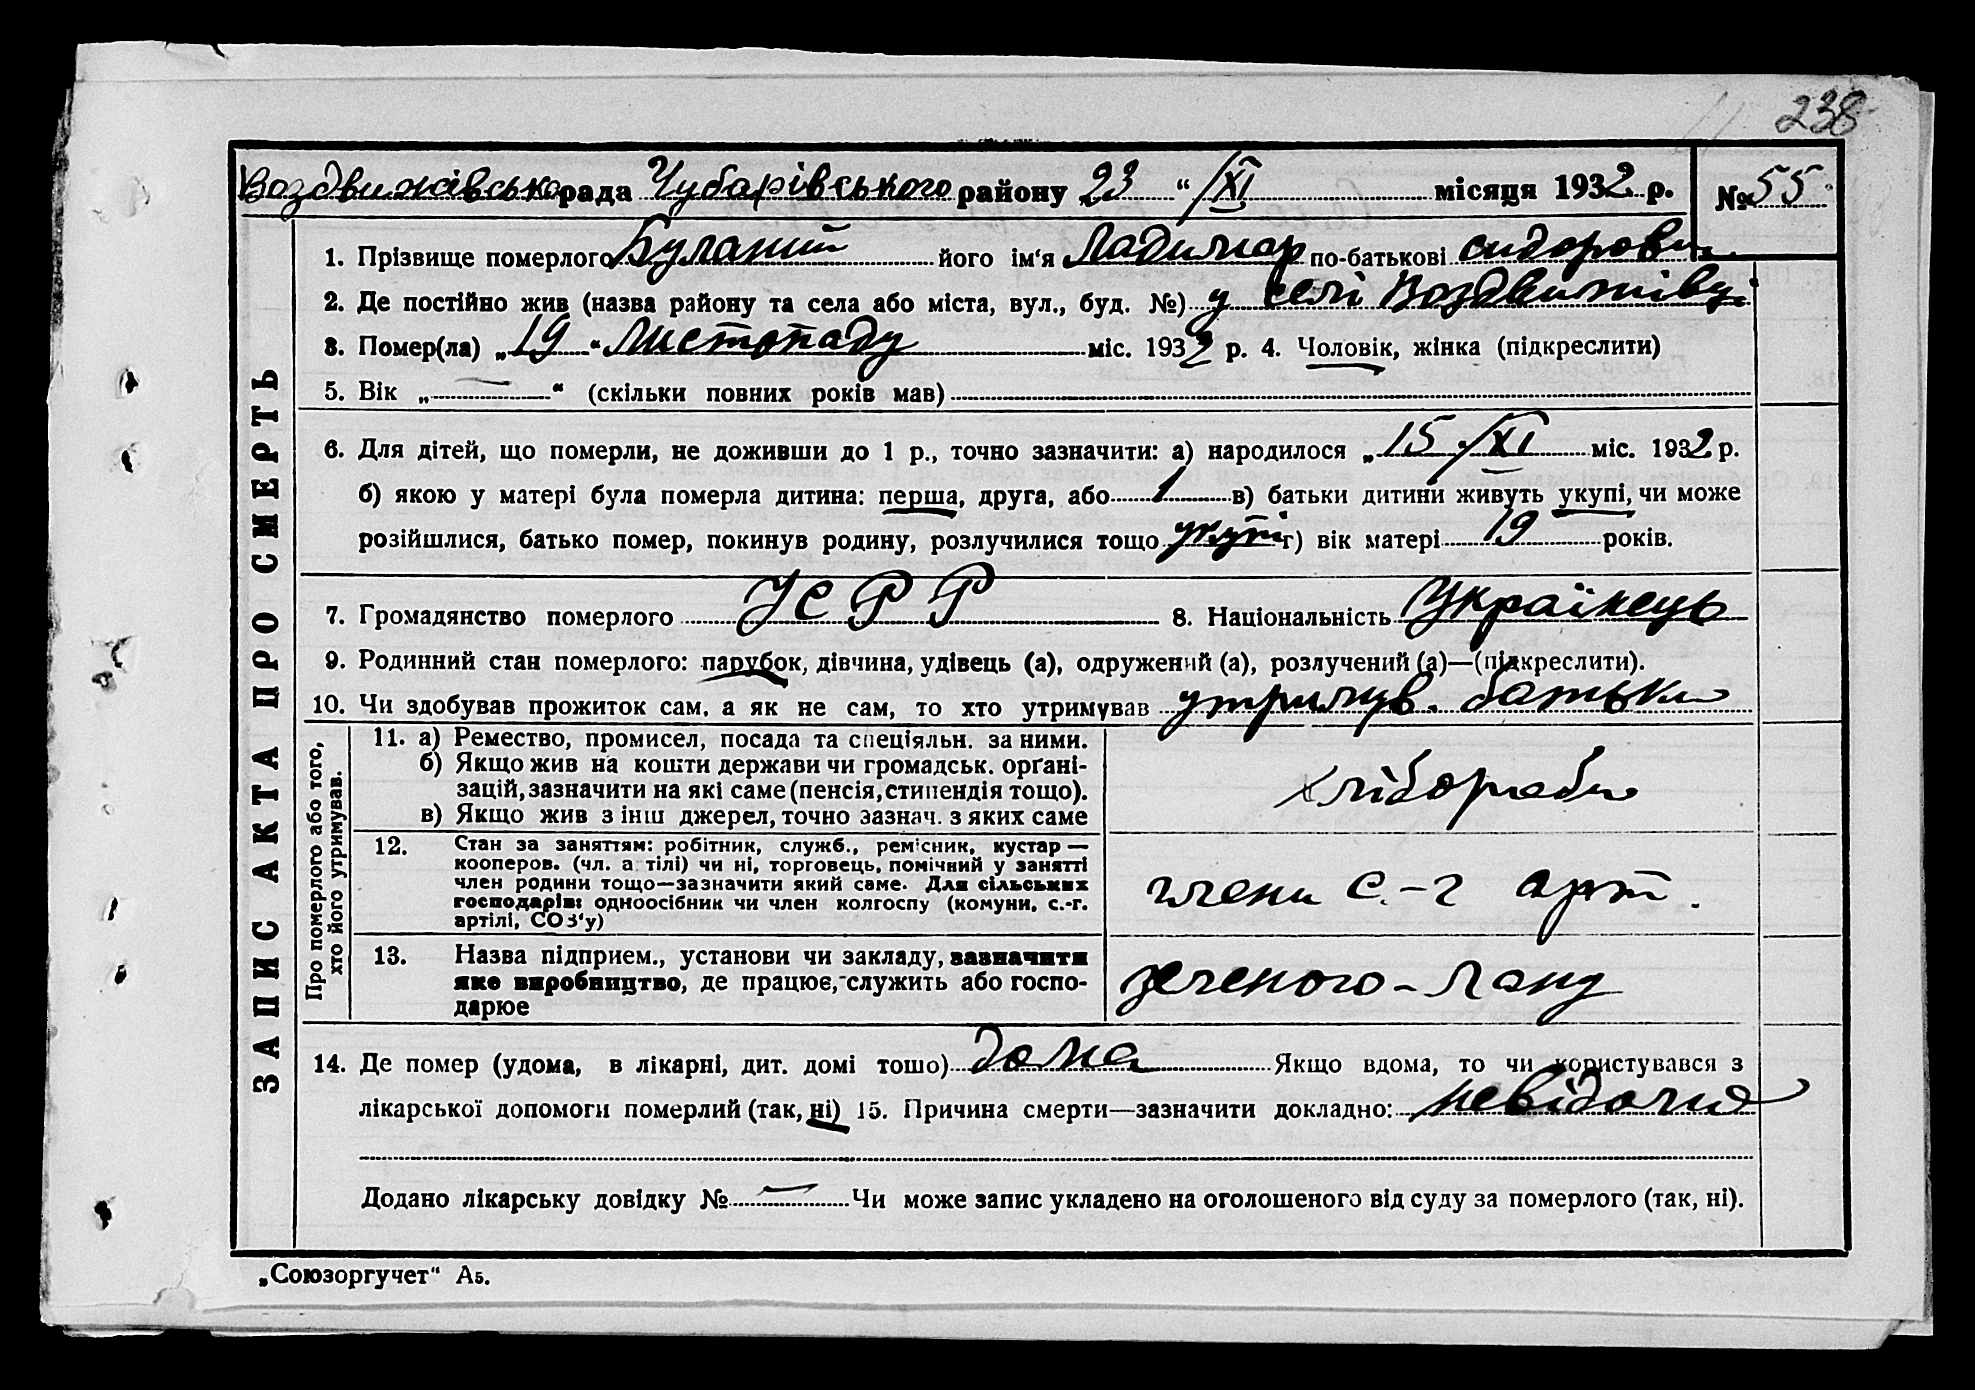 238
Воздвижівсько рада Чубарівського району 23 " /XI місяця 1932 р. № 55
1. Прізвище померлого Буланий його ім'я Ладимар по-батькові сидорович
2. Де постійно жив (назва району та села або міста, вул., буд. №) у селі Воздвижівці
3. Помер(ла) „ 19 " Листопаду міс. 1932 р. 4. Чоловік, жінка (підкреслити)
5. Вік „ — " (скільки повних років мав)
6. Для дітей, що померли, не доживши до 1 р., точно зазначити: а) народилося „ 15 /XI міс. 1932 р.
б) якою у матері була померла дитина: перша, друга, або 1 в) батьки дитини живуть укупі, чи може
розійшлися, батько помер, покинув родину, розлучилися тощо укупі г) вік матері 19 років.
7. Громадянство померлого УСРР 8. Національність Українець
9. Родинний стан померлого: парубок, дівчина, удівець (а), одружений (а), розлучений (а)—(підкреслити).
10. Чи здобував прожиток сам, а як не сам, то хто утримував утримув. батьки
11. а) Ремество, промисел, посада та спеціяльн. за ними.
б) Якщо жив на кошти держави чи громадськ. орґані-
зацій, зазначити на які саме (пенсія, стипендія тощо).
в) Якщо жив з інш джерел, точно зазнач. з яких саме
хлібороби
12. Стан за заняттям: робітник, служб., ремісник, кустар —
кооперов. (чл. а тілі) чи ні, торговець, помічний у занятті
член родини тощо—зазначити який саме. Для сільських
господарів: одноосібник чи член колгоспу (комуни, с.-г.
артілі, СОЗ'у)
члени с.-г арт.
13. Назва підприєм., установи чи закладу, зазначити
яке виробництво, де працює, служить або госпо-
дарює
зеленого-лану
14. Де помер (удома, в лікарні, дит. домі тошо) дома Якщо вдома, то чи користувався з
лікарської допомоги померлий (так, ні) 15. Причина смерти—зазначити докладно: невідомия
Додано лікарську довідку № — Чи може запис укладено на оголошеного від суду за померлого (так, ні).
„Союзоргучет" А5.
ЗАПИС АКТА ПРО СМЕРТЬ
Про померлого або того,
хто його утримував.